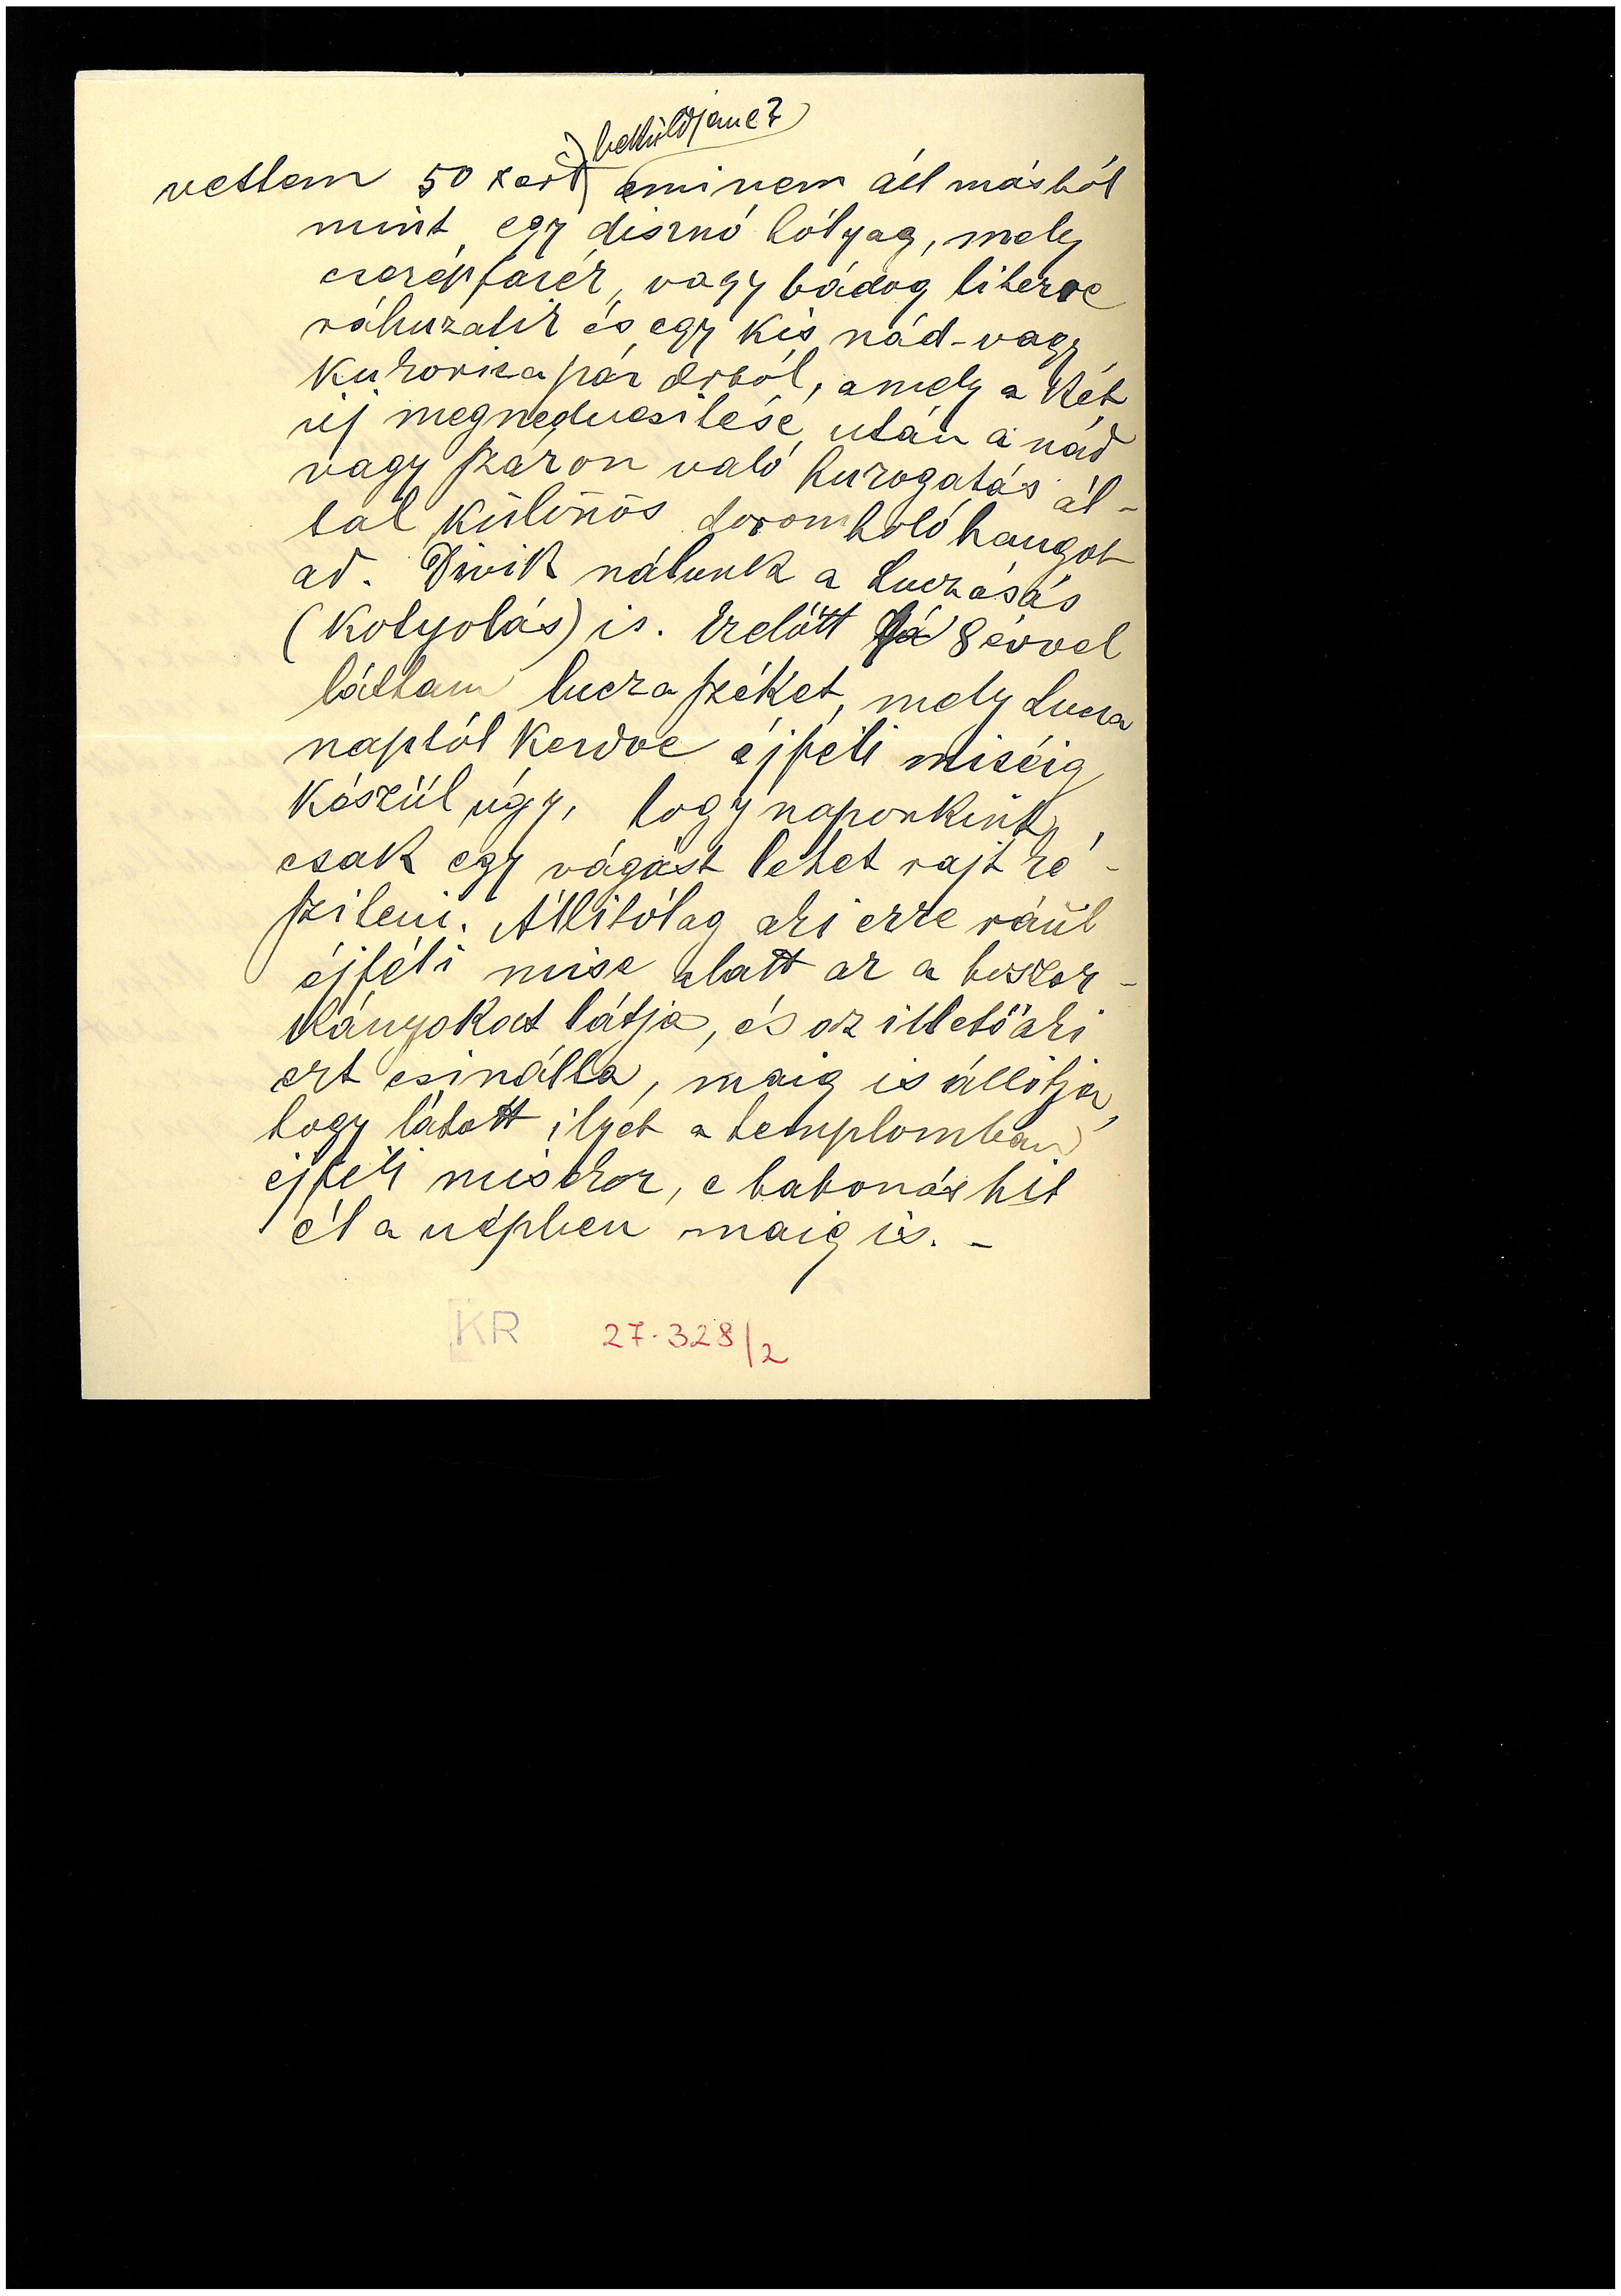 beküldjem e?
vettem 50 xert ami nem áll másból
mint egy disznó hólyag, mely
cserépfazék, vagy bádog literre
ráhuzatik és egy kis nád-vagy
kukoricapár drból, amely a két
ujj megnedvesitése után a nád
vagy száron való huzogatás ál-
tal különös doromboló hangot
ad. Divik nálunk a Luczázás
(Kotyolás) is. Ezelőtt 8 évvel
láttam lucza széket, mely Lucza
naptól kezdve éjféli miséig
készül úgy, hogy naponkint
csak egy vágást lehet rajt ké-
sziteni. Állitólag aki erre ráül
éjféli mise alatt az a boszor-
kányokat látja, és az illető aki
ezt csinálta, maig is állitja,
hogy látott ilyet a templomban
éjféli misekor, e babonás hit
él a népben maig is. -
KR 27.328/2